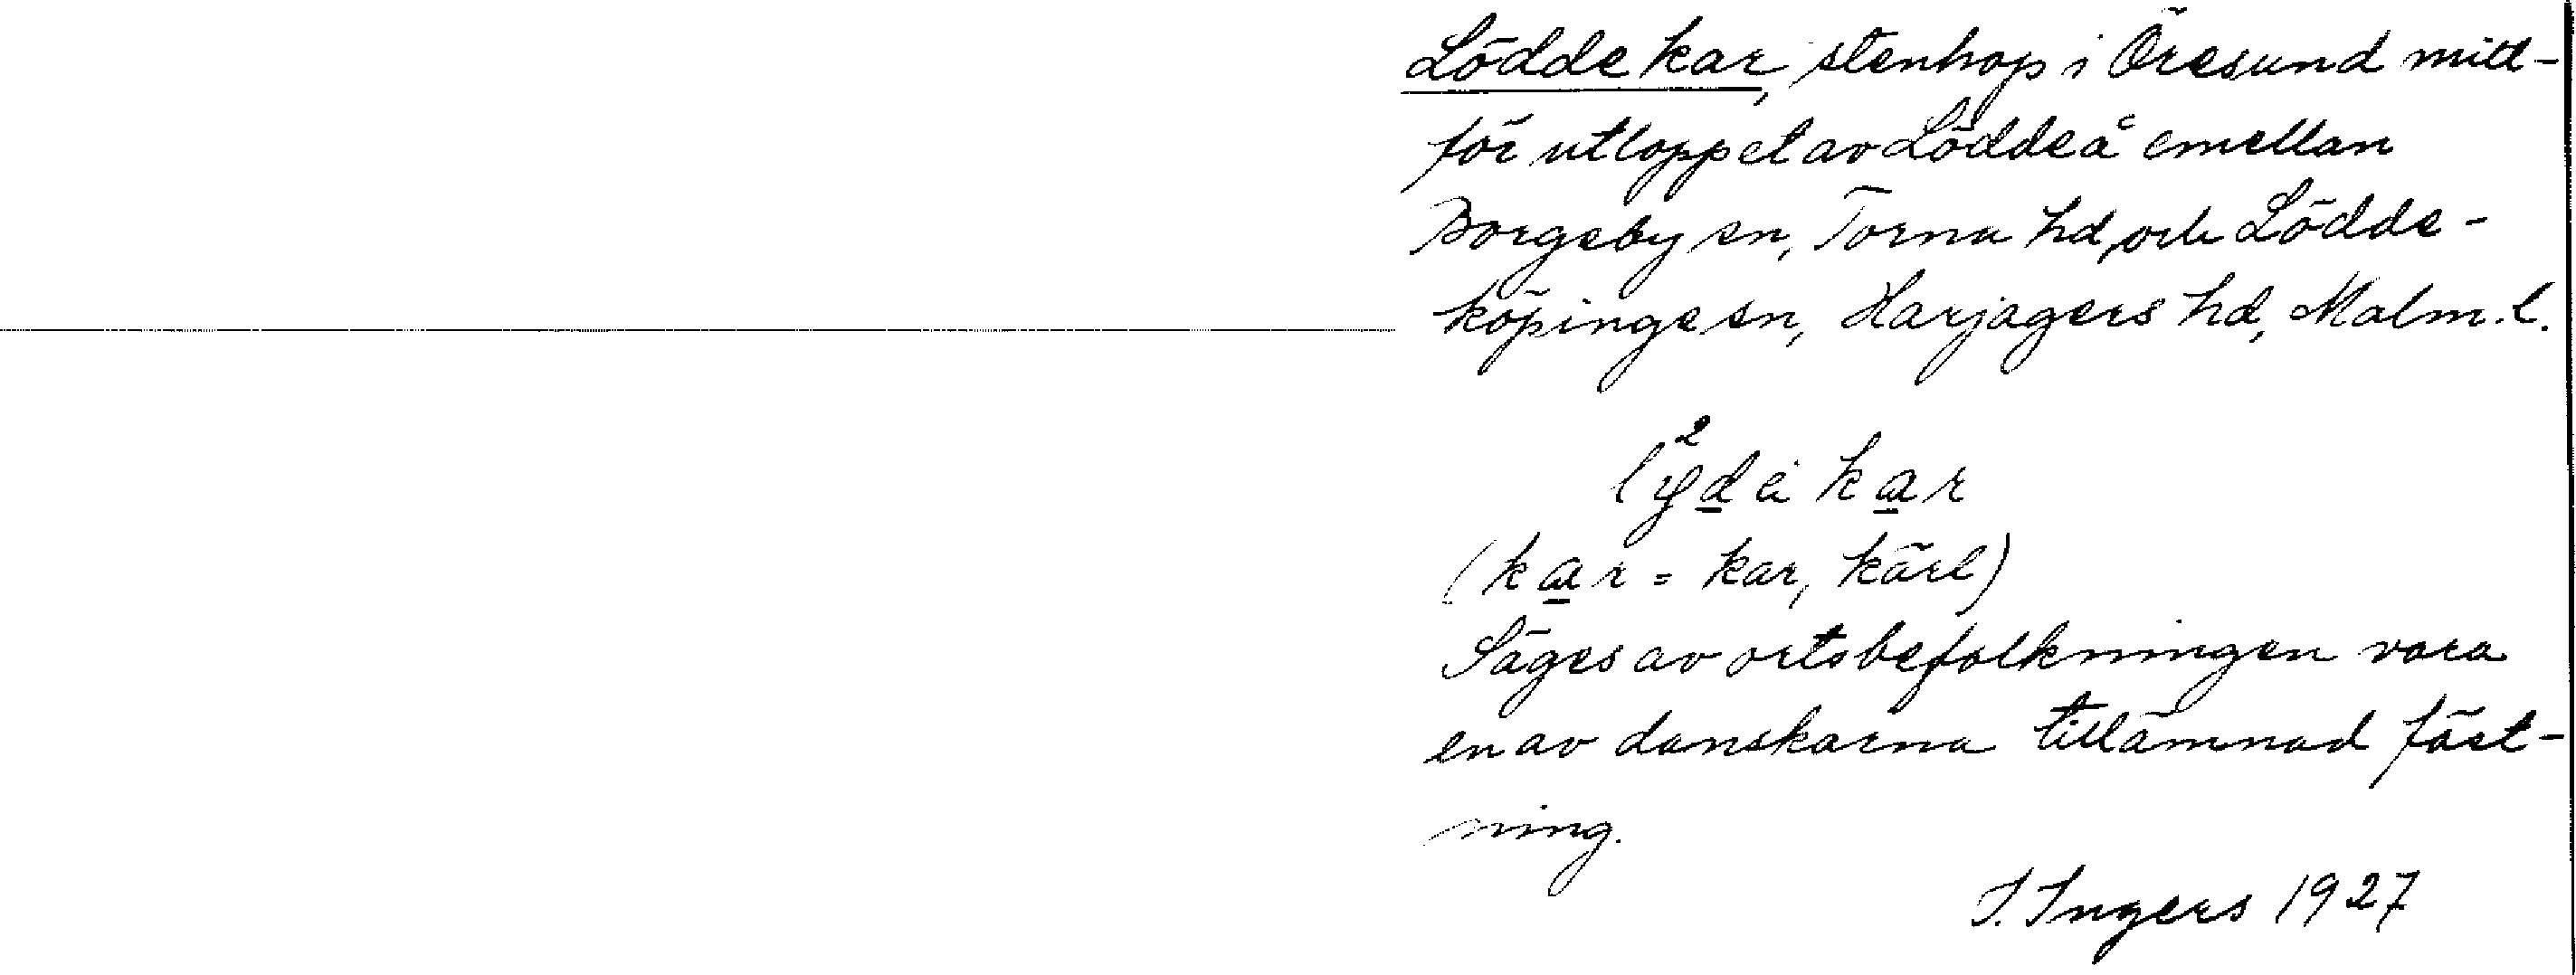 Lödde kar, stenhop i Öresund mitt-
för utloppet av Löddeå emellan
Borgeby sn, Torna hd, och Lödde-
köpinge sn, Harjagers hd, Malm. l.
kar
(kar = kar, kärl)
Säges av ortsbefolkningen vara
en av danskarna tillämnad fäst-
ning.
I. Ingers 1927